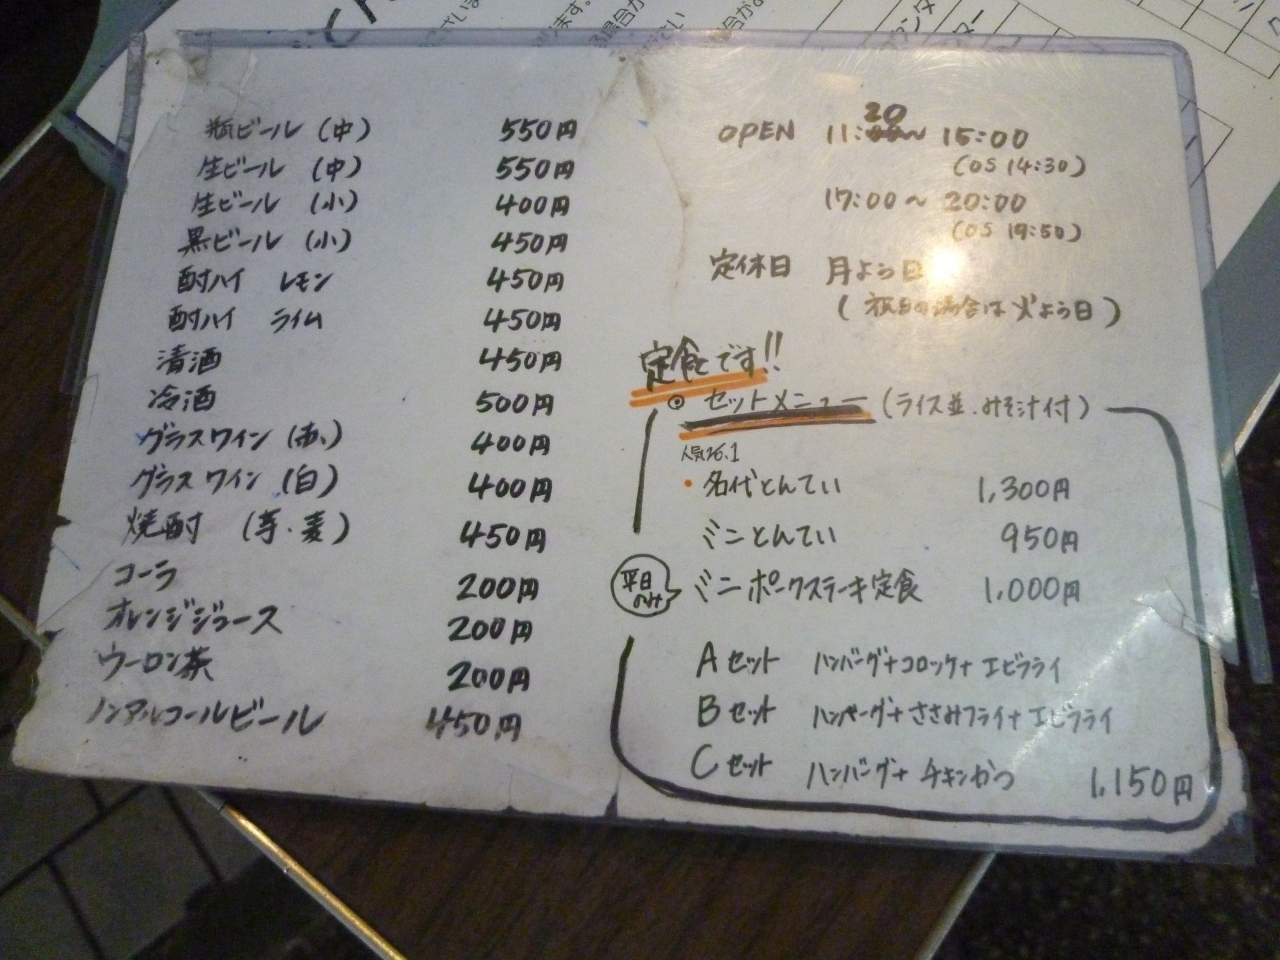 瓶ビール（中） 550円
生ビール（中） 550円
生ビール（小） 400円
黒ビール（小） 450円
酎ハイ レモン 450円
酎ハイ ライム 450円
清酒 450円
冷酒 500円
グラスワイン（赤） 400円
グラスワイン（白） 400円
焼酎 （芋・麦） 450円
コーラ 200円
オレンジジュース 200円
ウーロン茶 200円
ノンアルコールビール 450円
OPEN 11:20～15:00
（OS 14:30）
17:00～20:00
（OS 19:50）
定休日 月よう日
（祝日の場合は火よう日）
定食です!!
◎セットメニュー（ライス並・みそ汁付）
人気No.1
・名代とんてい 1,300円
ミニとんてい 950円
平日のみ ミニポークステーキ定食 1,000円
Aセット ハンバーグ+コロッケ+エビフライ
Bセット ハンバーグ+ささみフライ+エビフライ
Cセット ハンバーグ+チキンかつ 1,150円